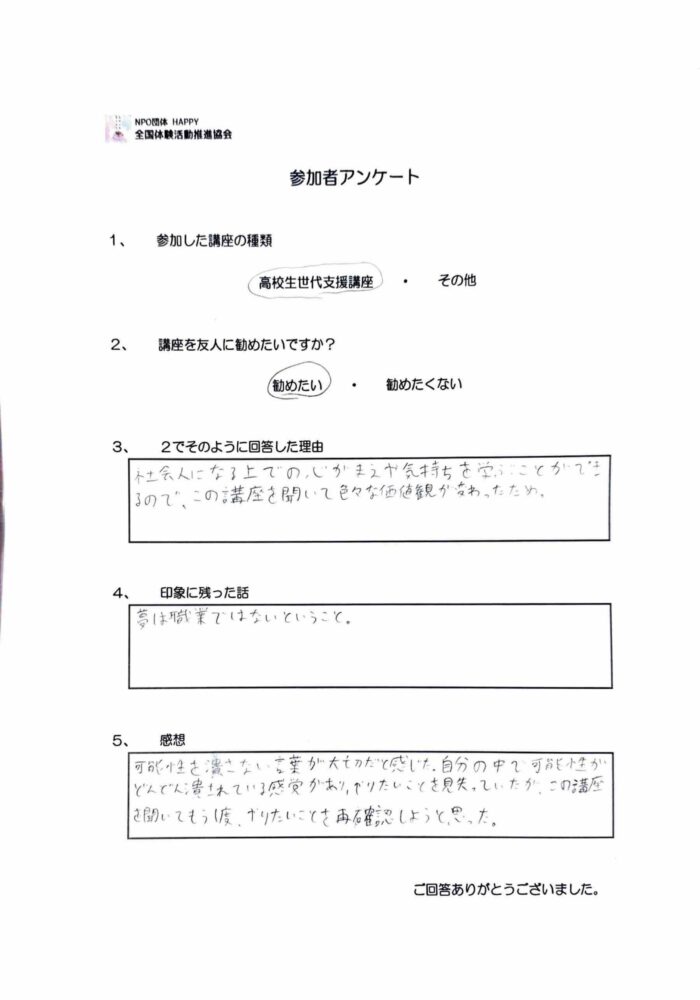 NPO団体 HAPPY
全国体験活動推進協会
参加者アンケート
1、 参加した講座の種類
高校生世代支援講座 ・ その他
2、 講座を友人に勧めたいですか？
勧めたい ・ 勧めたくない
3、 2でそのように回答した理由
社会人になる上での心がまえや気持ちを学ぶことができ
るので、この講座を聞いて色々な価値観が変わったため。
4、 印象に残った話
夢は職業ではないということ。
5、 感想
可能性を潰さない言葉が大切だと感じた。自分の中で可能性が
どんどん潰されている感覚があり、やりたいことを見失っていたが、この講座
を聞いてもう1度、やりたいことを再確認しようと思った。
ご回答ありがとうございました。